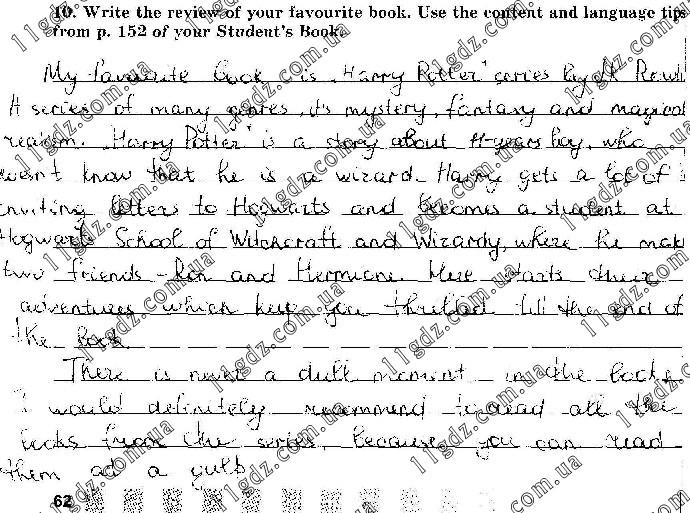 10. Write the review of your favourite book. Use the content and language tips
from p. 152 of your Student's Book.
My favourite book is "Harry Potter" series by
A series of many genres, it's mystery, fantasy and magical
realism. "Harry Potter" is a story about 11-years boy, who
doesn't know that he is a wizard. Harry gets a lot of
inviting letters to Hogwarts and becomes a student at
Hogwarts School of Witchcraft and Wizardy, where he mak
two friends - Ron and Hermione. Here starts their
adventures which keep you thrilled till the end of
the book.
There is never a dull moment in the book.
I would definitely recommend to read all the
books from the series, because you can read
them at a gulp.
62
11gdz.com.ua